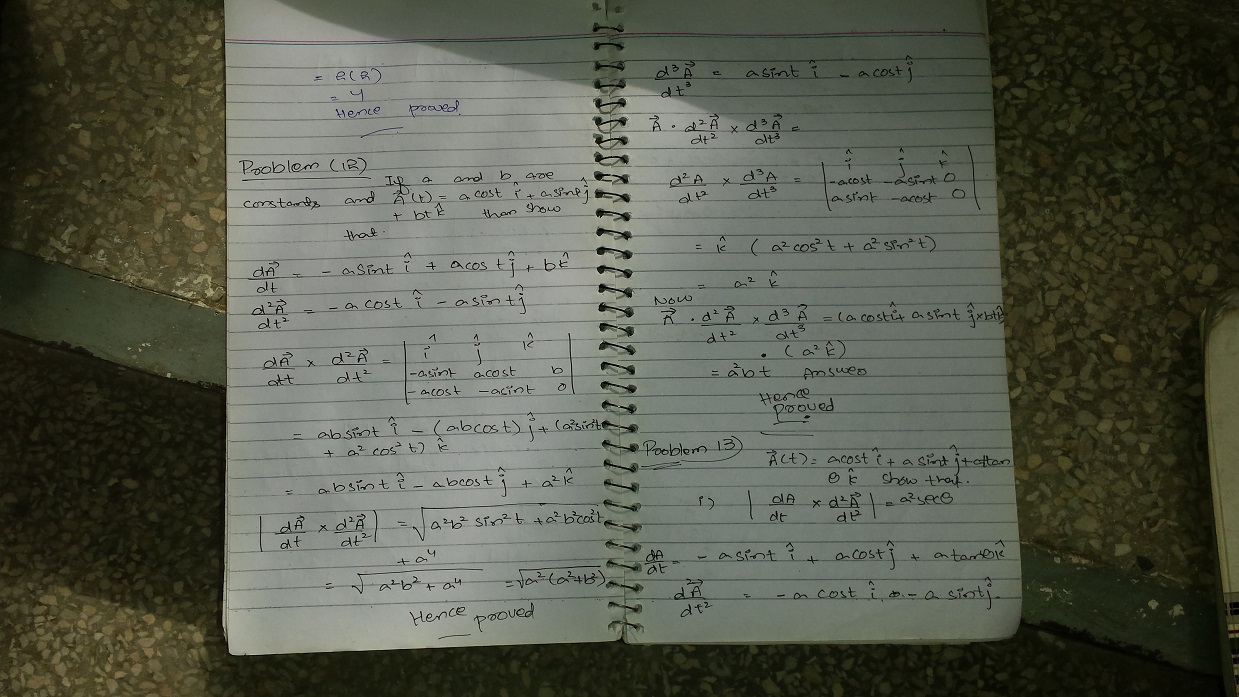 = 2(2)
= 4
Hence proved.
Problem (12)
If a and b are
constants and A⃗(t) = a cost î + a sint ĵ
+ bt k̂ than show
that.
dA⃗/dt = - a sint î + a cost ĵ + b k̂
d²A⃗/dt² = - a cost î - a sint ĵ
dA⃗/dt × d²A⃗/dt² = | î ĵ k̂
-asint acost b
-acost -asint 0 |
= ab sint î - (ab cost) ĵ + (a² sin² t
+ a² cos² t) k̂
= ab sint î - ab cost ĵ + a² k̂
| dA⃗/dt × d²A⃗/dt² | = √a²b² sin² t + a²b² cos² t
+ a⁴
= √a²b² + a⁴ = √a²(a²+b²)
Hence proved
d³A⃗/dt³ = a sint î - a cost ĵ
A⃗ · d²A⃗/dt² × d³A⃗/dt³ =
d²A/dt² × d³A/dt³ = | î ĵ k̂
-acost -asint 0
asint -acost 0 |
= k̂ (a² cos² t + a² sin² t)
= a² k̂
Now
A⃗ · d²A⃗/dt² × d³A⃗/dt³ = (a cost î + a sint ĵ × bt k̂
· (a² k̂)
= a²bt Answer
Hence
proved
Problem 13)
A⃗(t) = a cost î + a sint ĵ + at tan
θ k̂ show that.
i) | dA/dt × d²A⃗/dt² | = a² secθ
dA/dt = - a sint î + a cost ĵ + a tanθ k̂
d²A⃗/dt² = - a cost î - a sint ĵ.